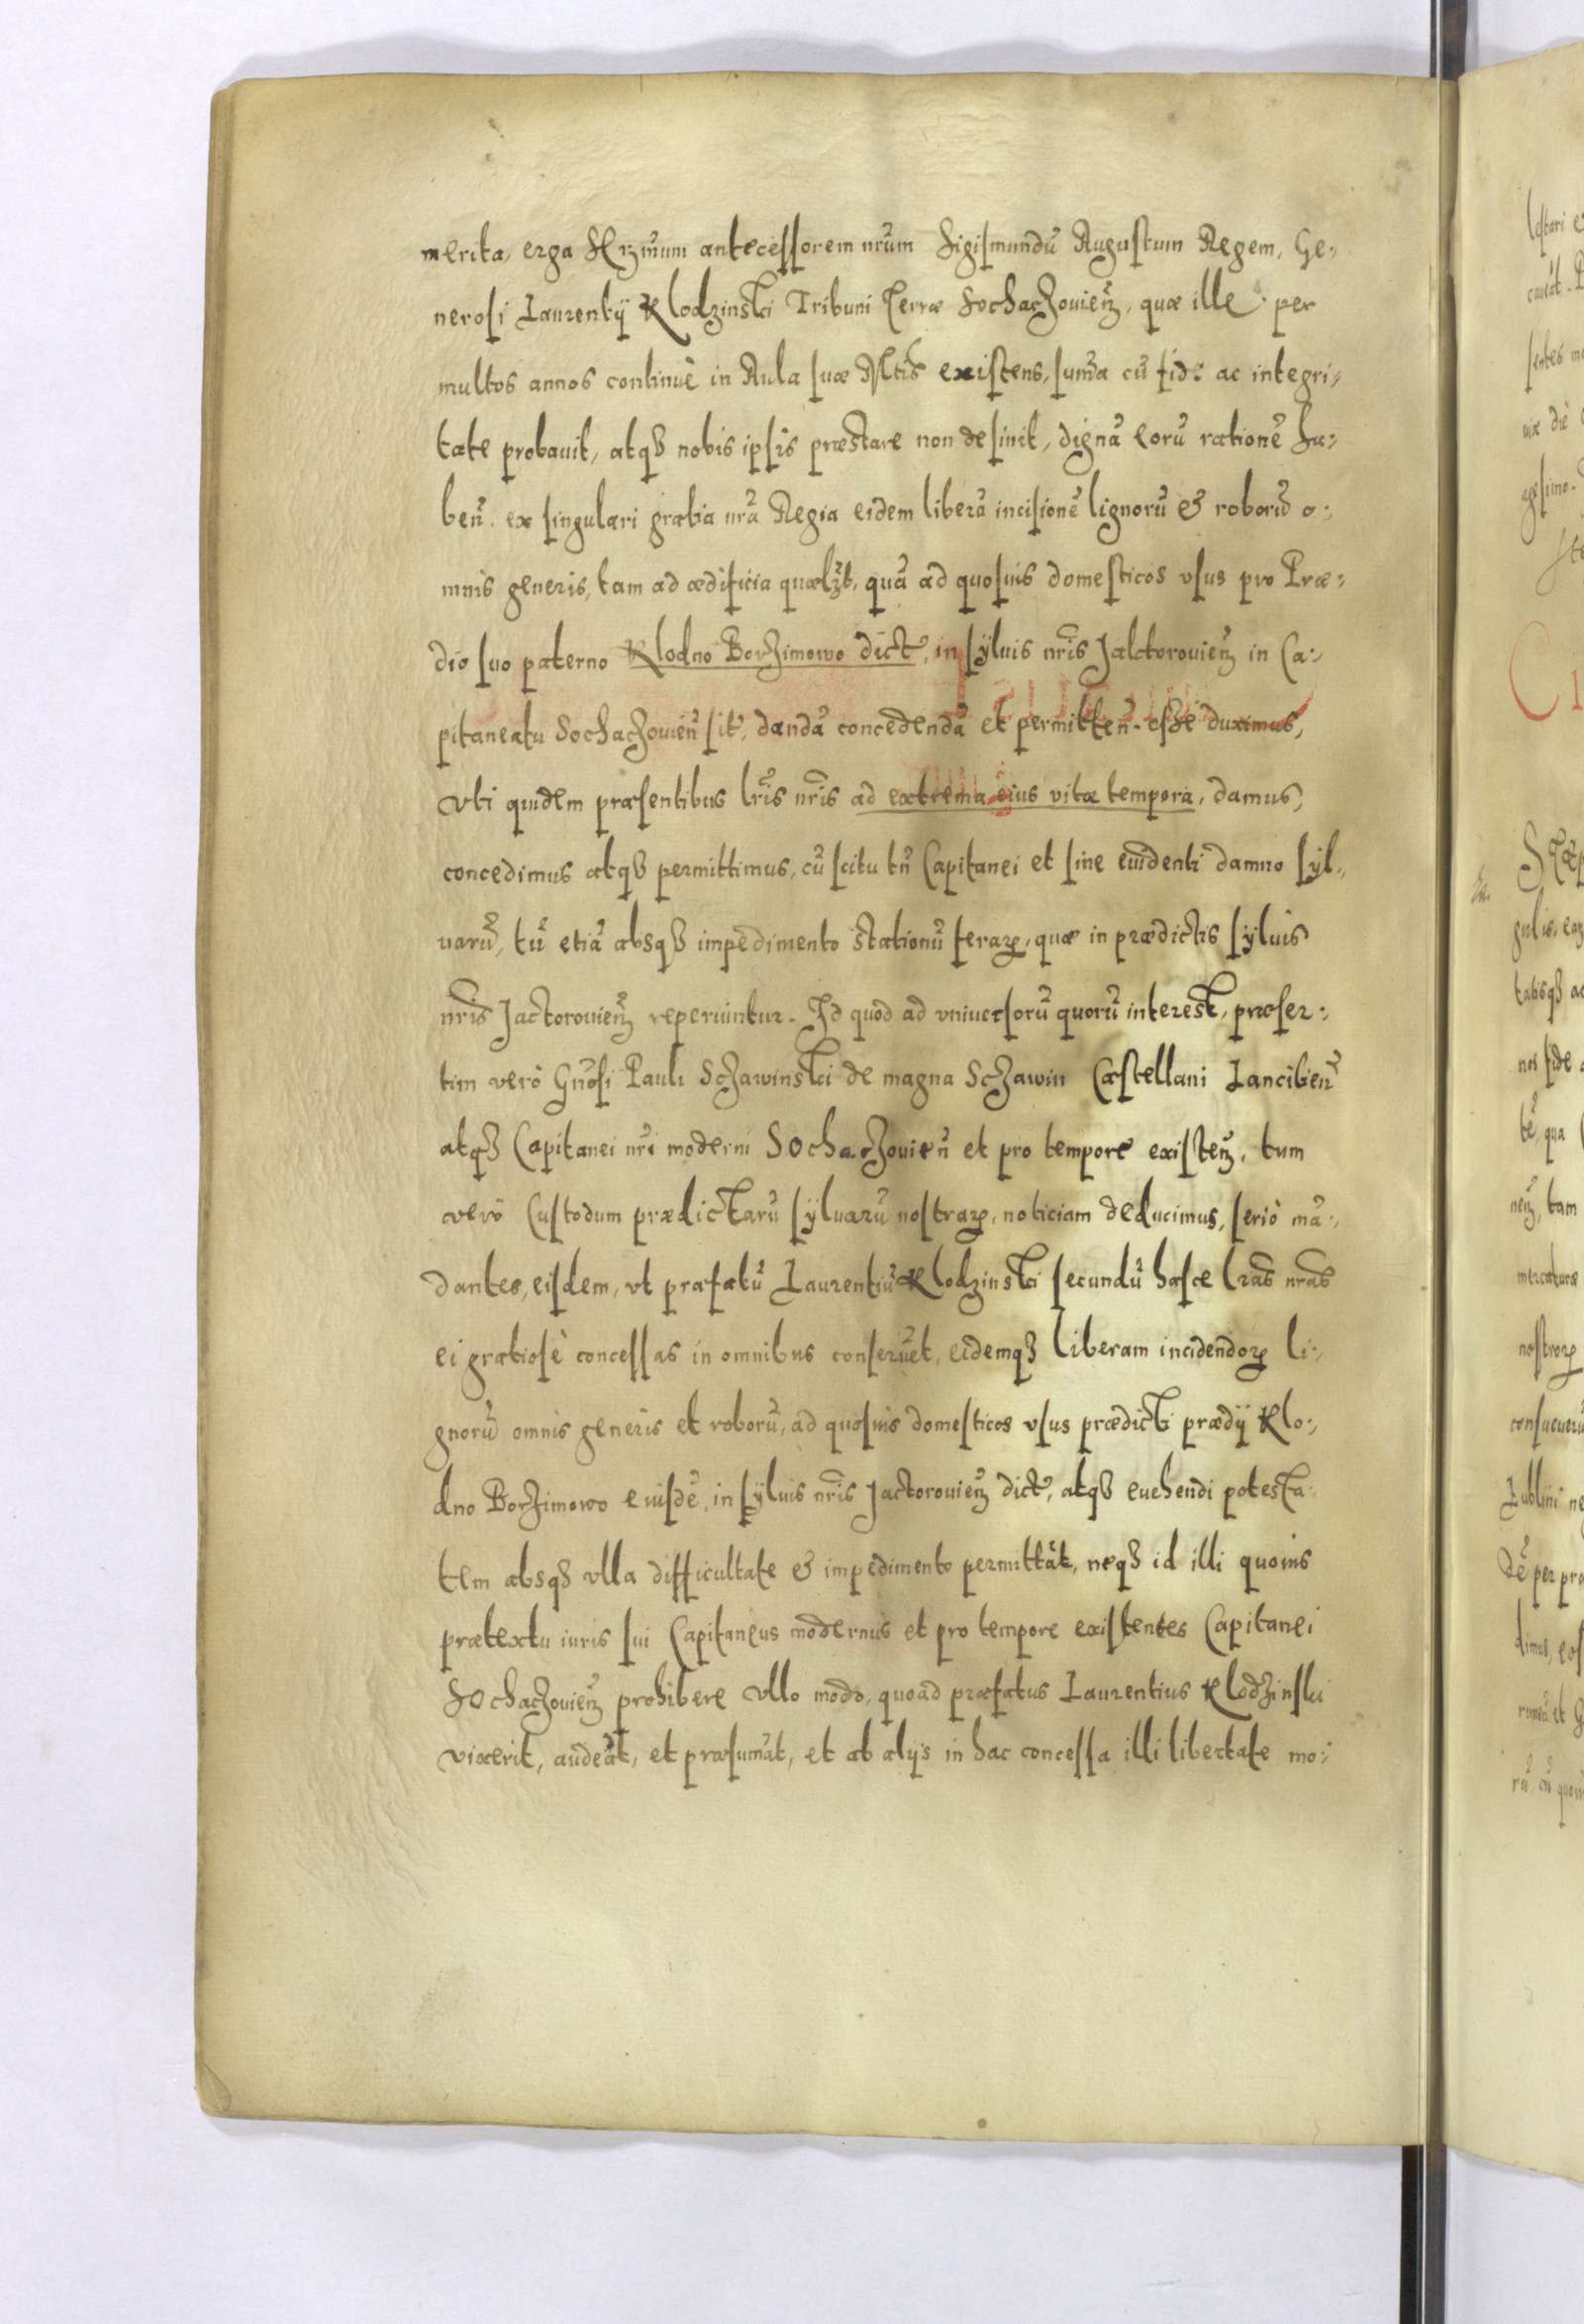 merita, erga Serzmum antecessorem nrum Sigismundū Augustum Regem, Ge-
nerosi Laurentij Klodzinski Tribuni Terræ Sochaczouieñ, quæ ille per
multos annos continuè in Aula suæ Mtis existens, suma cū fide ac integri-
tate probauit, atqȝ nobis ipsis præstare non desinit, dignā eorū rationē ha-
beñ. ex singulari gratia nrā Regia eidem liberā incisionē lignorū & roborū o-
mnis generis, tam ad ædificia quælibt, quā ad quosuis domesticos vsus pro Præ-
dio suo paterno Klodno Borzimowo dict, in syluis nris Jactorouieñ in Ca-
pitaneatu Sochaczouieñ sit, dandā concedendā et permitteñ. esse duximus,
vti quidem præsentibus lris nris ad extrema eius vitæ tempora, damus,
concedimus atqȝ permittimus, cū scitu tñ Capitanei et sine euidenti damno syl-
uarū, tū etiā absqȝ impedimento stationū feraꝝ, quæ in prædictis syluis
nris Jactorouieñ reperiuntur. Id quod ad vniuersorū quorū interest, præser-
tim verò Gnosi Pauli Sczawinski de magna Sczawin Castellani Lancibeñ
atqȝ Capitanei nri moderni Sochaczouieñ et pro tempore existeñ, tum
verò Custodum prædictarū syluarū nostraꝝ, noticiam deducimus, seriò mā-
dantes, eisdem, vt præfatū Laurentiū Klodzinski secundū hasce lras nras
ei gratiosè concessas in omnibus conseruēt, eidemqȝ liberam incidendoꝝ li-
gnorū omnis generis et roborū, ad quosuis domesticos vsus prædicti prædij Klo-
dno Borzimowo eiusdē, in syluis nris Jactorouieñ dict, atqȝ euehendi potesta-
tem absqȝ vlla difficultate & impedimento permittāt, neqȝ id illi quouis
prætextu iuris sui Capitaneus modernus et pro tempore existentes Capitanei
Sochaczouieñ prohibere vllo modo, quoad præfatus Laurentius Klodzinski
vixerit, audeāt, et præsumāt, et ab alijs in hac concessa illi libertate mo-